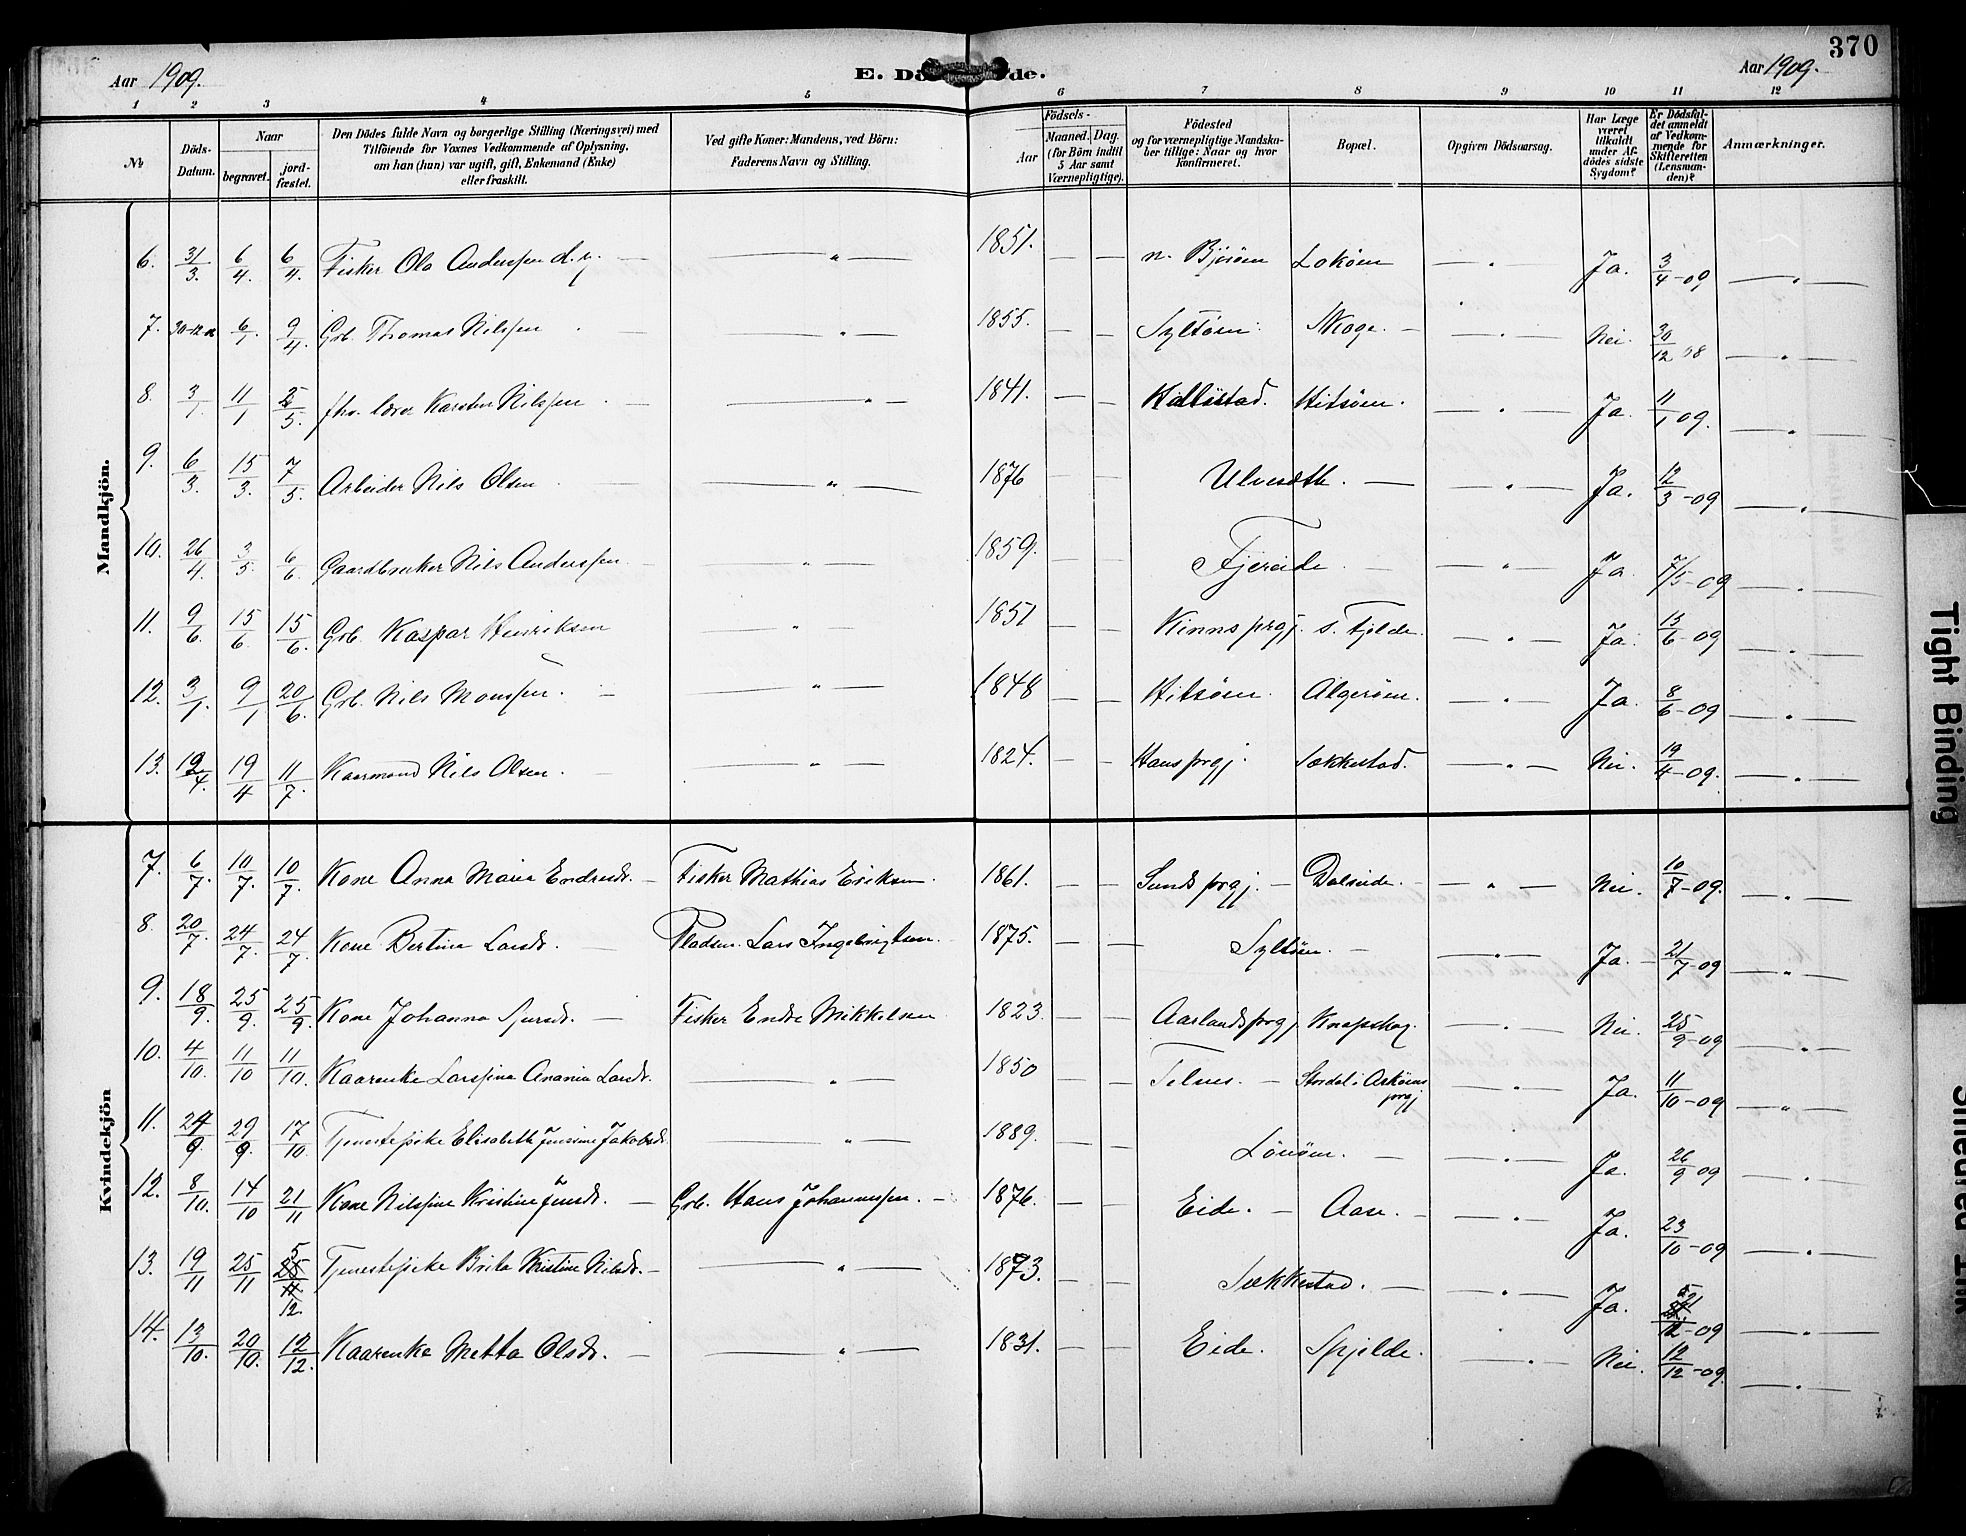 370
Aar 1909.
E. Dö de.
Aar 1909.
1 2 3 4 5 6 7 8 9 10 11 12
№
Döds-Datum.
Naar
begravet.
jord-fæstet.
Den Dödes fulde Navn og borgerlige Stilling (Næringsvei) med
Tilföiende for Voxnes Vedkommende af Oplysning,
om han (hun) var ugift, gift, Enkemand (Enke)
eller fraskilt.
Ved gifte Koner: Mandens, ved Börn:
Faderens Navn og Stilling.
Födsels-
Aar
Maaned. Dag.
(for Börn indtil
5 Aar samt
Værnepligtige).
Födested
og for værnepligtige Mandska-
ber tillige: Naar og hvor
konfirmeret.
Bopæl.
Opgiven Dödsaarsag.
Har Læge
været
tilkaldt
under Af-
dödes sidste
Sygdom?
Er Dödsfal-
det anmeldt
af Vedkom-
mende for
Skifteretten
(Lensman-
den)?
Anmærkninger.
Mandkjön.
6. 31/3. 6/4. 6/4. Fisker Ola Anderssen d. y. — " — 1851. — — n. Björöen Loköen — " — Ja. 3/4-09 — " —
7. 30-12-08 6/1 9/4. Grb. Thomas Nilssen — " — 1855. — — Syltöen. Skoge. — " — Nei. 30/12 08 — " —
8. 3/1. 11/1 25/5. fhv. lærer Karsten Nilssen — " — 1841. — — Kallestad. Hitsöen. — " — Ja. 11/1 09. — " —
9. 6/3. 15/3. 7/5. Arbeider Nils Olsen — " — 1876 — — Ulvesæth. — — " — Ja. 12/3-09 — " —
10. 26/4. 3/5. 6/6. Gaardbruker Nils Anderssen — " — 1859. — — Fjæreide — — " — Ja. 7/5-09 — " —
11. 9/6. 15/6. 15/6. Grb. Kaspar Henriksen — " — 1851 — — Kinns prgj. s. Fjelde. — " — Ja. 15/6-09 — " —
12. 3/1. 9/1 20/6. Grb. Nils Monssen. — " — 1848 — — Hitsöen. Algeröen. — " — Ja. 8/6-09 — " —
13. 12/4. 19/4 11/7. Kaarmand Nils Olsen. — " — 1824. — — Haus prgj. Sækkestad. — " — Nei. 19/4-09. — " —
Kvindekjön
7. 6/7. 10/7. 10/7. Kone Anna Maria Endresdr. — Fisker Mathias Eriksen. 1861. — — Sunds prgj. — Dalseide. — " — Nei. 10/7-09. — " —
8. 20/7. 24/7. 24/7. Kone Bertine Larsdr. — Pladsm. Lars Ingebrigtsen. 1875. — — Syltöen. — — " — Ja. — 21/7-09 — " —
9. 18/9. 25/9. 25/9. Kone Johanna Sjursdr. — Fisker Endre Mikkelsen 1823. — — Aarlands prgj. Knapskog. — " — Nei. 25/9-09 — " —
10. 4/10. 11/10 11/10. Kaarenke Larssine Anania Larsdr. — " — 1850 — — Telnes. — Stordal i Asköens prgj — " — Ja. 11/10-09 — " —
11. 24/9. 29/9. 17/10. Tjenestepike Elisabeth Jensine Jakobsdr. — " — 1889. — — Lönöen. — — " — Ja. 26/9 09 — " —
12. 8/10. 14/10 21/11 Kone Nilssine Kristine Jensdr. — Grb. Hans Johannessen. — 1876. — — Eide. — Aase. — — " — Ja. 23/10-09 — " —
13. 19/11 25/11 5/12. Tjenestepike Brita Kristine Nilsdr. — — " — 1873. — — Sækkestad. — — " — Ja. 5/12-09 — " —
14. 13/10. 20/10. 12/12. Kaarenke Metta Olsdr. — — " — 1831. — — Eide. Spjelde. — " — Nei. 12/12-09. — " —
Tight Binding